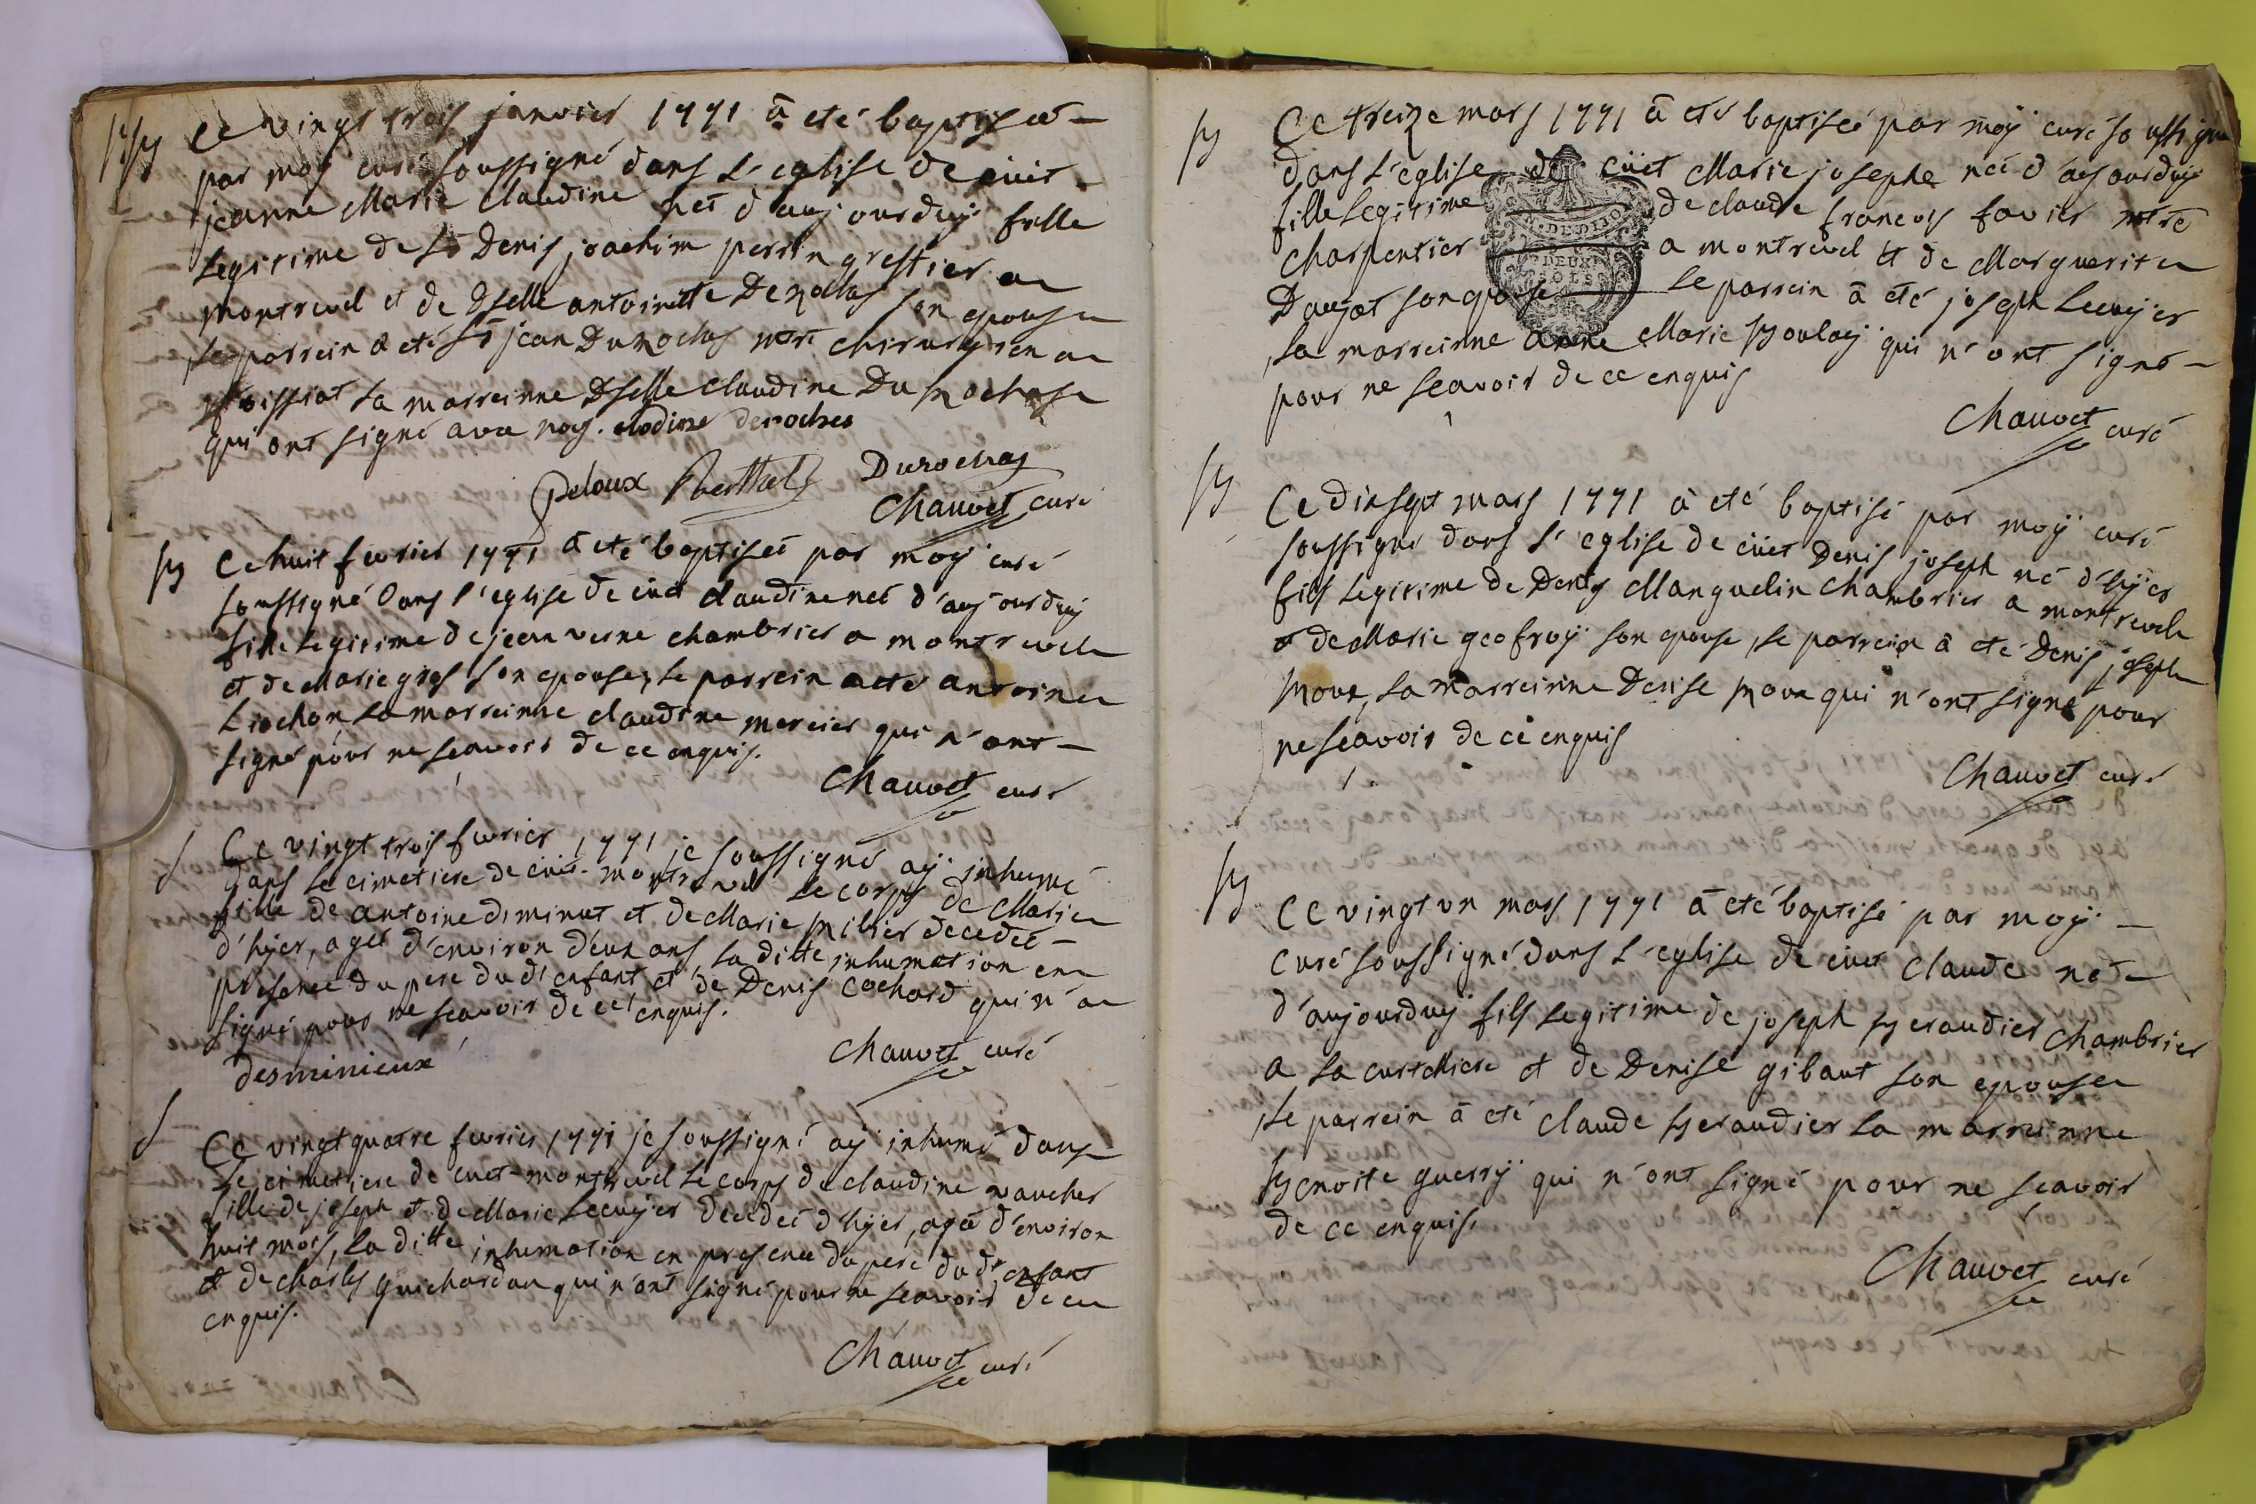 Ce vingt trois janvier 1771 à eté baptisée
par moy curé soussigné dans l'eglise de cüet
jeanne Marie Claudine neé d'aujourduÿ fille
legitime de Sr Denis joachim perrin greffier a
montrevel et de Dselle antoinette Derochas son epouse
le parrein a eté Sr jean Durochas mtre chirurgien a
foissiat la marreinne Dselle Claudine Durochas
qui ont signé avec nous. clodine deroches
Peloux Berthet Durochas
Chauvet curé
Ce huit fevrier 1771 à eté baptiseé par moÿ curé
soussigné dans l'eglise de cüet claudine neé d'aujourduÿ
fille legitime de jean verne chambrier a montrevel
et de Marie gros son epouse, le parrein a eté antoine
Liochon la marreinne claudine mercier qui n'ont
signé pour ne sçavoir de ce enquis.
Chauvet curé
Ce vingt trois fevrier 1771 je soussigné aÿ inhumé
dans le cimetiere de cüet-montrevel le corps de Marie
fille de antoine diminut et de Marie decedeé
d'hÿer, ageé d'environ deux ans, la ditte inhumation en
presence du pere du dt enfant et de Denis Cochard qui n'a
signé pour ne sçavoir de ce enquis.
desminieux
Chauvet curé
Ce vingt quatre fevrier 1771 je soussigné aÿ inhumé dans
le cimetiere de cuet-montrevel le corps de claudine vaucher
fille de joseph et de Marie Lecuÿer decedeé d'hÿer, ageé d'environ
huit mois, la ditte inhumation en presence du pere du dt enfant
et de charles guichardan qui n'ont signé pour ne sçavoir de ce
enquis.
Chauvet curé
Ce treize mars 1771 à eté baptiseé par moÿ curé soussigné
dans l'eglise de cüet Marie josephe neé d'aujourduÿ
fille legitime de claude francois favier mtre
charpentier a montrevel et de Marguerite
Daujat son epouse le parrein à eté joseph Lecuÿer
la marreinne anne Marie Boulaÿ qui n'ont signé
pour ne sçavoir de ce enquis
DEUX SOLS
Chauvet curé
Ce dixsept mars 1771 à eté baptisé par moÿ curé
soussigné dans l'eglise de cüet Denis joseph né d'hÿer
fils legitime de Denis Manguelin chambrier a montrevel
et de Marie geofroÿ son epouse, le parrein à eté Denis joseph
, la marreinne Denise qui n'ont signé pour
ne sçavoir de ce enquis
Chauvet curé
Ce vingt un mars 1771 à eté baptisé par moÿ
curé soussigné dans l'eglise de cüet claude né
d'aujourduÿ fils legitime de joseph Beraudier chambrier
a la curtelliere et de Denise gibaut son epouse
le parrein à eté claude Beraudier la marreinne
Benoite guerrÿ qui n'ont signé pour ne sçavoir
de ce enquis.
Chauvet curé